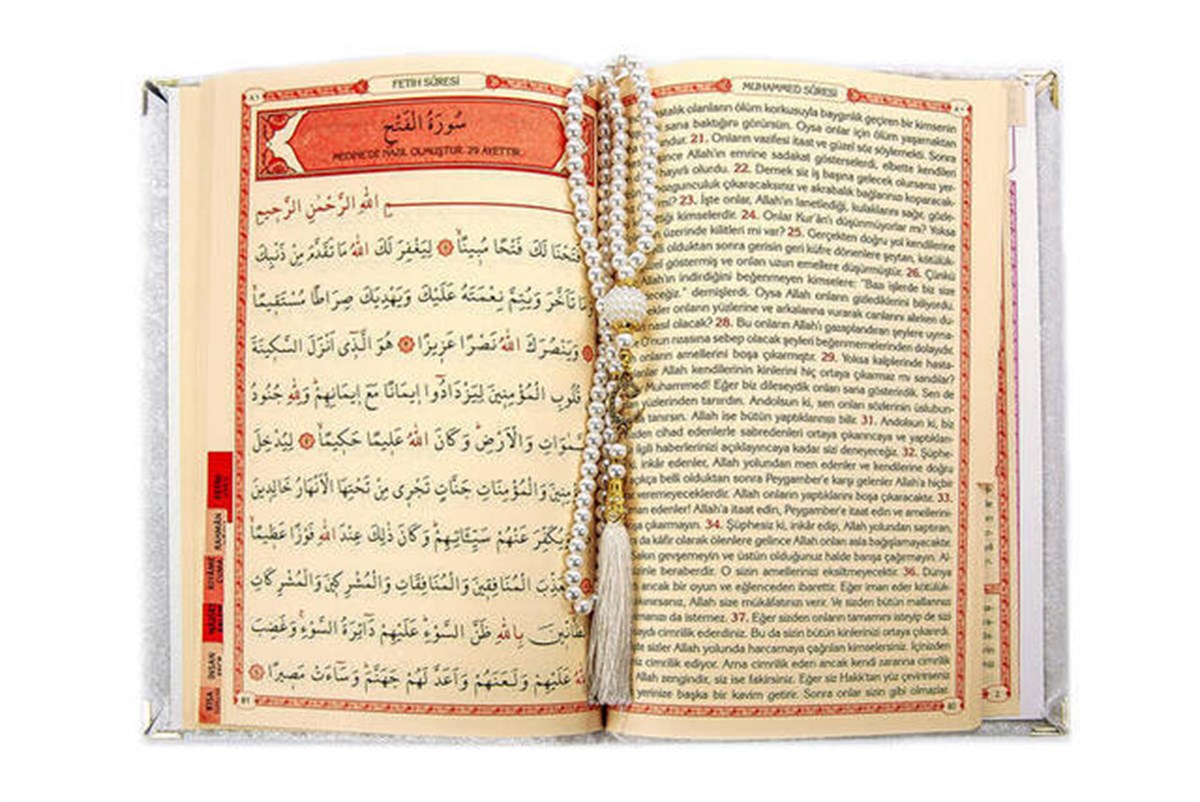 FETİH SÛRESİ
سُورَةُ الْفَتْحِ
MEDİNE'DE NAZİL OLMUŞTUR. 29 AYETTİR.
اللّٰهِ الرَّحْمٰنِ الرَّحِيمِ
لَكَ فَتْحًا مُبِينًا ۞ لِيَغْفِرَ لَكَ اللّٰهُ مَا تَقَدَّمَ مِنْ ذَنْبِكَ
تَاَخَّرَ وَيُتِمَّ نِعْمَتَهُ عَلَيْكَ وَيَهْدِيَكَ صِرَاطًا مُسْتَقِيمًا
وَيَنْصُرَكَ اللّٰهُ نَصْرًا عَزِيزًا ۞ هُوَ الَّذِٓى اَنْزَلَ السَّكِينَةَ
قُلُوبِ الْمُؤْمِنِينَ لِيَزْدَادُٓوا اِيمَانًا مَعَ اِيمَانِهِمْ وَلِلّٰهِ جُنُودُ
وَالْاَرْضِ وَكَانَ اللّٰهُ عَلِيمًا حَكِيمًا ۞ لِيُدْخِلَ
وَالْمُؤْمِنَاتِ جَنَّاتٍ تَجْرِى مِنْ تَحْتِهَا الْاَنْهَارُ خَالِدِينَ
عَنْهُمْ سَيِّـَٔاتِهِمْ وَكَانَ ذٰلِكَ عِنْدَ اللّٰهِ فَوْزًا عَظِيمًا
الْمُنَافِقِينَ وَالْمُنَافِقَاتِ وَالْمُشْرِكِينَ وَالْمُشْرِكَاتِ
بِاللّٰهِ ظَنَّ السَّوْءِ عَلَيْهِمْ دَٓائِرَةُ السَّوْءِ وَغَضِبَ
عَلَيْهِمْ وَلَعَنَهُمْ وَاَعَدَّ لَهُمْ جَهَنَّمَ وَسَٓاءَتْ مَصِيرًا ۞
FETİH
RAHMÂN
KIYÂME
CUMA
İNSAN
KISA
81
MUHAMMED SÛRESİ
olanların ölüm korkusuyla baygınlık geçiren bir kimsenin
sana baktığını görürsün. Oysa onlar için ölüm yaşamaktan
21. Onların vazifesi itaat ve güzel söz söylemekti. Sonra
Allah'ın emrine sadakat gösterselerdi, elbette kendileri
hayırlı olurdu. 22. Demek siz iş başına gelecek olursanız yer-
bozgunculuk çıkaracaksınız ve akrabalık bağlarınızı koparacak-
23. İşte onlar, Allah'ın lanetlediği, kulaklarını sağır, gözle-
kimselerdir. 24. Onlar Kur'ân'ı düşünmüyorlar mı? Yoksa
üzerinde kilitleri mi var? 25. Gerçekten doğru yol kendilerine
olduktan sonra gerisin geri küfre dönenlere şeytan, kötülük-
göstermiş ve onları uzun emellere düşürmüştür. 26. Çünkü
indirdiğini beğenmeyen kimselere: "Bazı işlerde biz size
demişlerdi. Oysa Allah onların gizlediklerini biliyordu.
onların yüzlerine ve arkalarına vurarak canlarını alırken du-
nasıl olacak? 28. Bu onların Allah'ı gazaplandıran şeylere uyma-
O'nun rızasına sebep olacak şeyleri beğenmemelerinden dolayıdır.
onların amellerini boşa çıkarmıştır. 29. Yoksa kalplerinde hasta-
Allah kendilerinin kinlerini hiç ortaya çıkarmaz mı sandılar?
Muhammed! Eğer biz dileseydik onları sana gösterirdik. Sen de
yüzlerinden tanırdın. Andolsun ki, sen onları sözlerinin üslubun-
tanırsın. Allah ise bütün yaptıklarınızı bilir. 31. Andolsun ki, biz
cihad edenlerle sabredenleri ortaya çıkarıncaya ve yaptıkları-
ilgili haberlerinizi açıklayıncaya kadar sizi deneyeceğiz. 32. Şüphe-
inkâr edenler, Allah yolundan men edenler ve kendilerine doğru
belli olduktan sonra Peygamber'e karşı gelenler Allah'a hiçbir
veremeyeceklerdir. Allah onların yaptıklarını boşa çıkaracaktır. 33.
edenler! Allah'a itaat edin, Peygamber'e itaat edin ve amellerini-
çıkarmayın. 34. Şüphesiz ki, inkâr edip, Allah yolundan saptıran,
da kâfir olarak ölenlere gelince Allah onları asla bağışlamayacaktır.
gevşemeyin ve üstün olduğunuz halde barışa çağırmayın. Al-
sizinle beraberdir. O sizin amellerinizi eksiltmeyecektir. 36. Dünya
ancak bir oyun ve eğlenceden ibarettir. Eğer iman eder kötülük-
Allah size mükâfatınızı verir. Ve sizden bütün mallarınızı
da istemez. 37. Eğer sizden onların tamamını isteyip de sizi
cimrilik ederdiniz. Bu da sizin bütün kinlerinizi ortaya çıkarırdı.
sizler Allah yolunda harcamaya çağrılan kimselersiniz. İçinizden
cimrilik ediyor. Ama cimrilik eden ancak kendi zararına cimrilik
Allah zengindir, siz ise fakirsiniz. Eğer siz Hakk'tan yüz çevirirseniz
yerinize başka bir kavim getirir. Sonra onlar sizin gibi olmazlar.
80
2